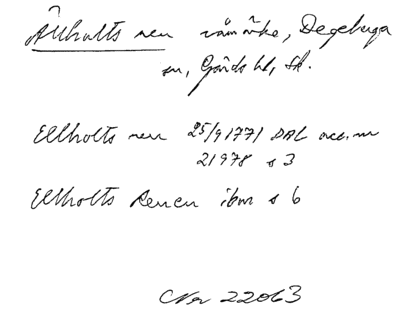 Ällholts ren råmärke, Degeberga
sn, Gärds hd, Sk.
Ellholts ren 25/9 1771 DAL acc.nr
21978 s 3
Ellholts Renen ibm s 6
Nr 22063